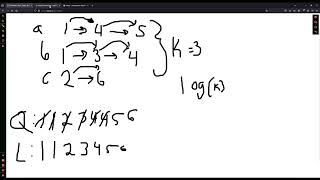 a 1 → 4 → 5
b 1 → 3 → 4
c 2 → 6
K = 3
log(k)
Q: 1 1 2 3 4 4 5 6
L: 1 1 2 3 4 4 5 6